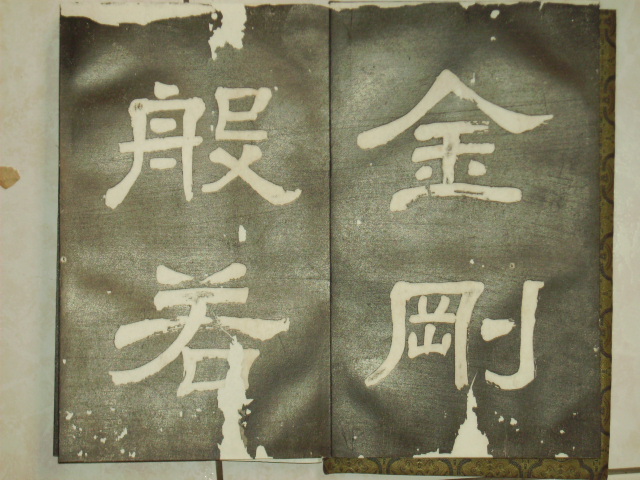 金剛
般若